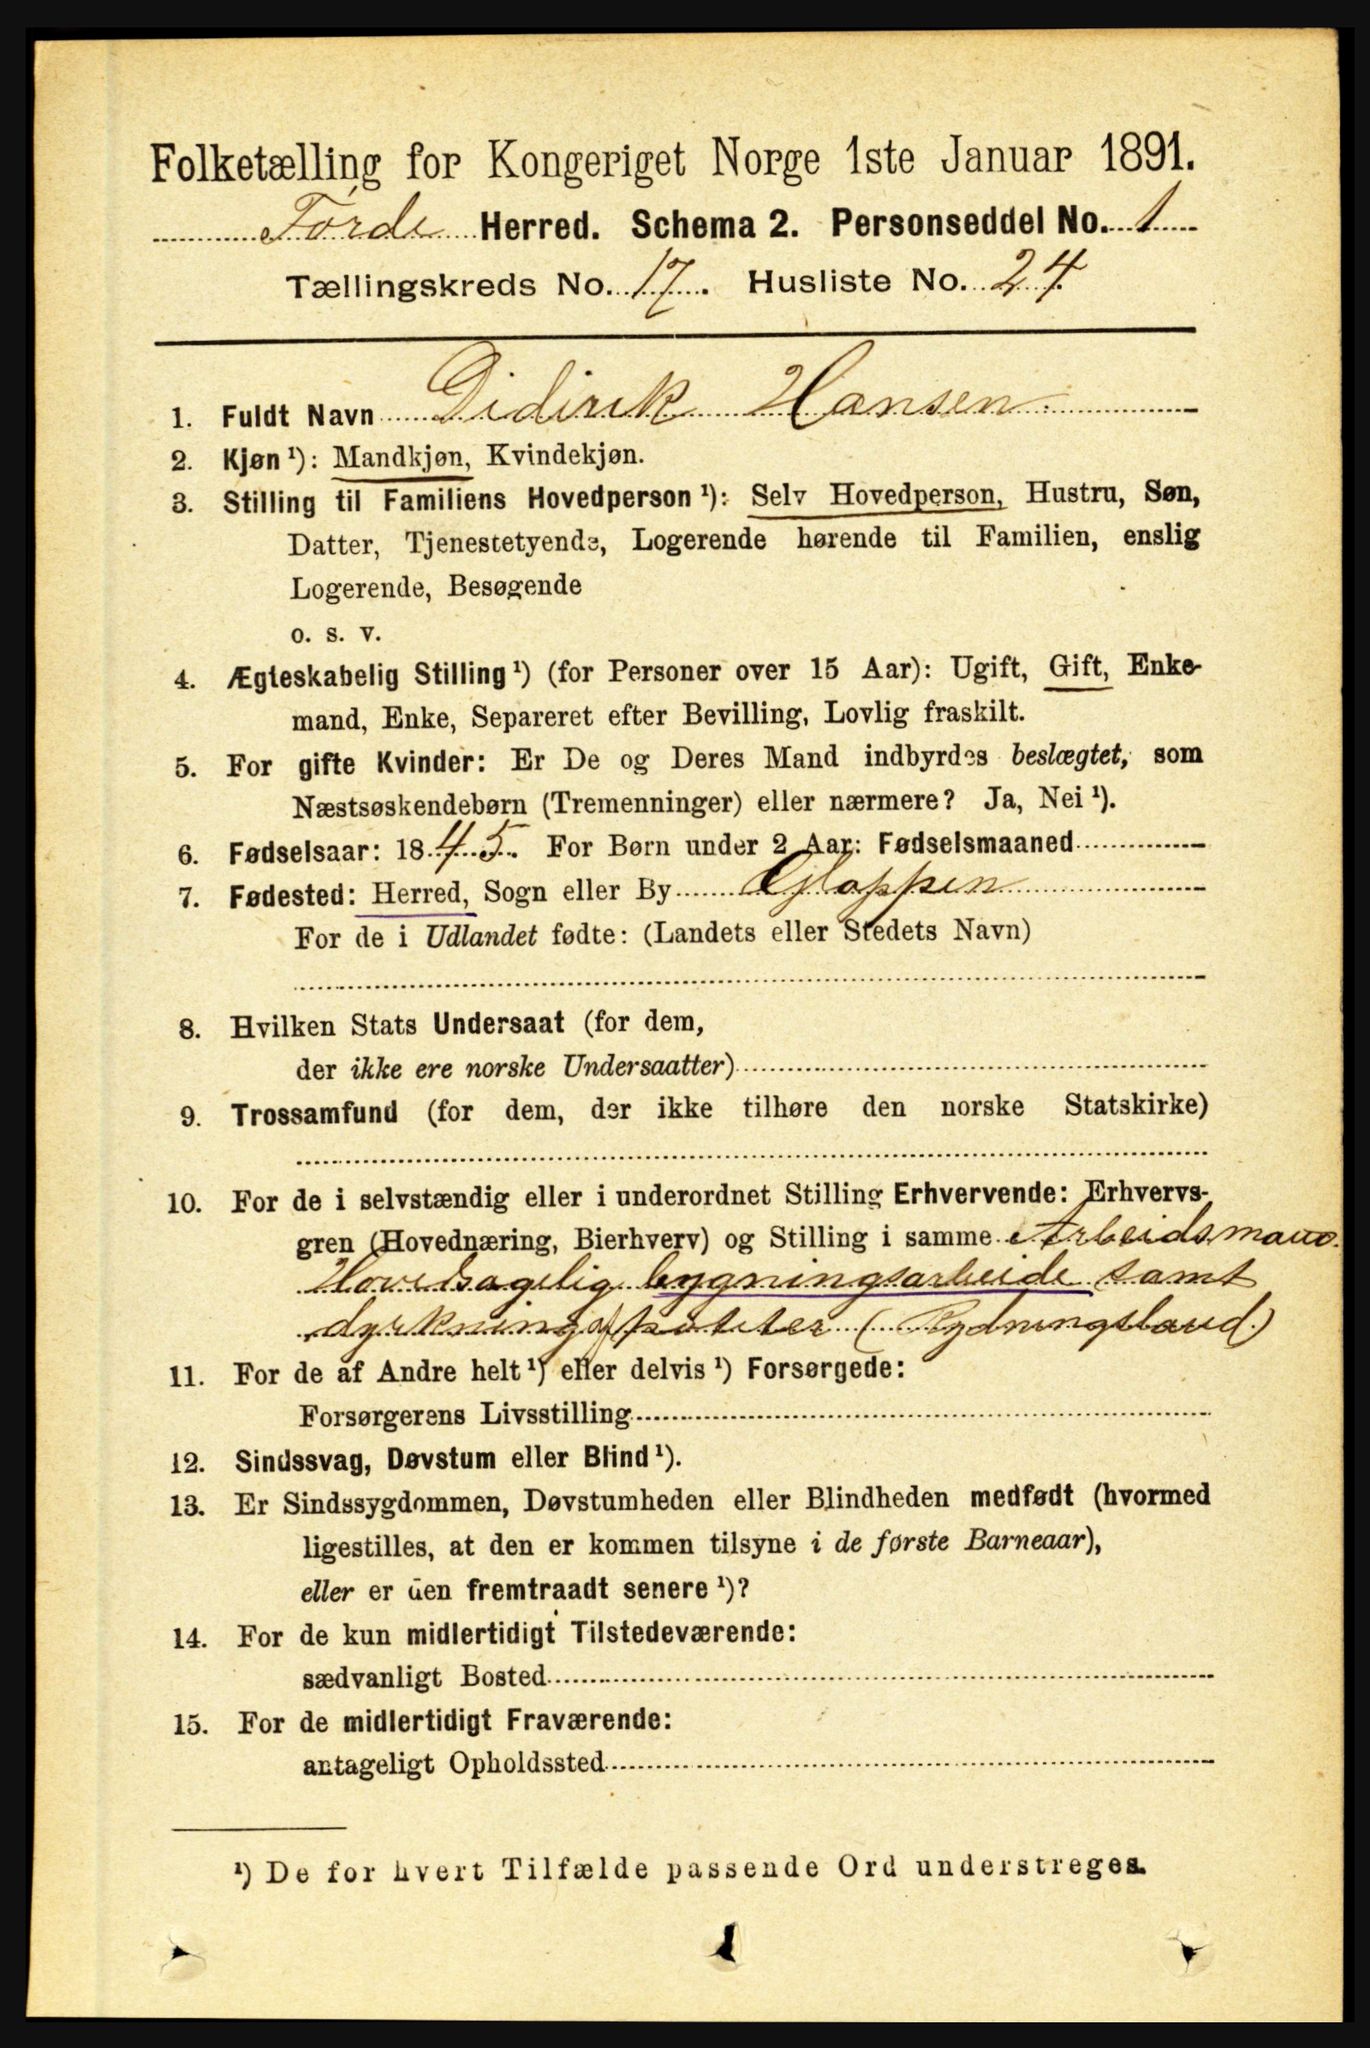 Folketælling for Kongeriget Norge 1ste Januar 1891.
Førde Herred. Schema 2. Personseddel No. 1
Tællingskreds No. 17. Husliste No. 24
1. Fuldt Navn Didirik Hansen
2. Kjøn ¹): Mandkjøn, Kvindekjøn.
3. Stilling til Familiens Hovedperson ¹): Selv Hovedperson, Hustru, Søn,
Datter, Tjenestetyende, Logerende hørende til Familien, enslig
Logerende, Besøgende
o. s. v.
4. Ægteskabelig Stilling ¹) (for Personer over 15 Aar): Ugift, Gift, Enke-
mand, Enke, Separeret efter Bevilling, Lovlig fraskilt.
5. For gifte Kvinder: Er De og Deres Mand indbyrdes beslægtet, som
Næstsøskendebørn (Tremenninger) eller nærmere? Ja, Nei ¹).
6. Fødselsaar: 1845. For Børn under 2 Aar: Fødselsmaaned
7. Fødested: Herred, Sogn eller By Gloppen
For de i Udlandet fødte: (Landets eller Stedets Navn)
8. Hvilken Stats Undersaat (for dem,
der ikke ere norske Undersaatter)
9. Trossamfund (for dem, der ikke tilhøre den norske Statskirke)
10. For de i selvstændig eller i underordnet Stilling Erhvervende: Erhvervs-
gren (Hovednæring, Bierhverv) og Stilling i samme Arbeidsmand.
Hovedsagelig bygningsarbeide samt
dyrkning af poteter (Rydningsland.)
11. For de af Andre helt ¹) eller delvis ¹) Forsørgede:
Forsørgerens Livsstilling
12. Sindssvag, Døvstum eller Blind ¹).
13. Er Sindssygdommen, Døvstumheden eller Blindheden medfødt (hvormed
ligestilles, at den er kommen tilsyne i de første Barneaar),
eller er den fremtraadt senere ¹)?
14. For de kun midlertidigt Tilstedeværende:
sædvanligt Bosted
15. For de midlertidigt Fraværende:
antageligt Opholdssted
¹) De for hvert Tilfælde passende Ord understreges.